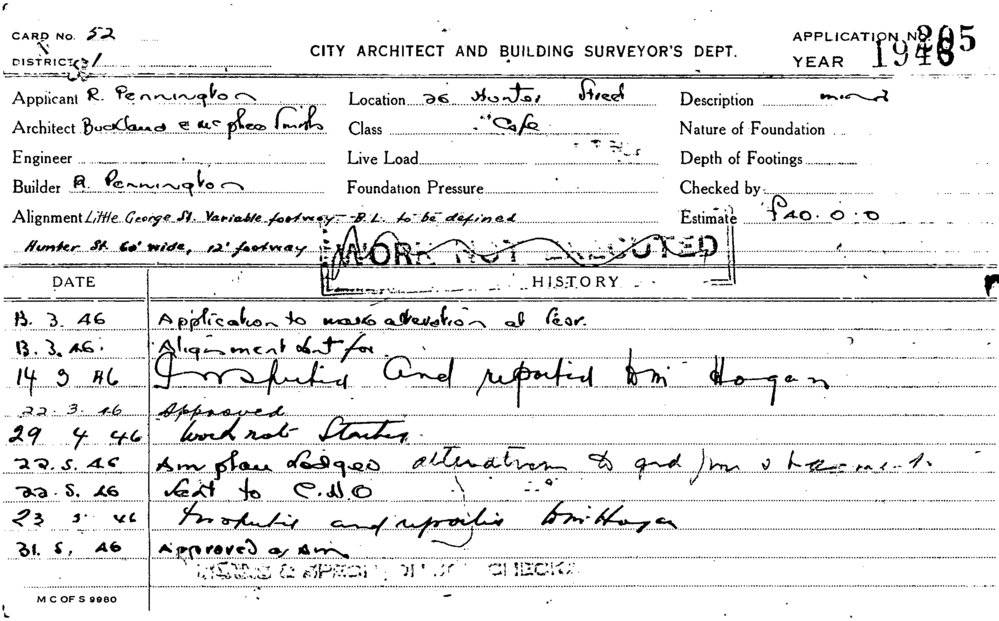 CARD No. 52
DISTRICT 1
CITY ARCHITECT AND BUILDING SURVEYOR'S DEPT.
APPLICATION No 205
YEAR 1946
Applicant R. Pennington
Location 26 Hunter Street
Description minor
Architect Buckland & McPhee Smith
Class "Cafe
Nature of Foundation
Engineer
Live Load
Depth of Footings
Builder R. Pennington
Foundation Pressure
Checked by
Alignment Little George St. Variable footway – B.L. to be defined
Estimate £40.0.0
Hunter St. 60' wide, 12' footway
WORK NOT EXECUTED
DATE
HISTORY
13. 3. 46 Application to make alteration at rear.
13. 3. 46. Alignment sent for
14 3 46 Inspected and reported Hogan
22. 3. 46 Approved
29 4 46 Work not Started.
22. 5. 46 Am plan lodged alterations to gnd
22. 5. 46 Sent to C.H.O
23 5 46 Inspected and reported Hogan
31. 5. 46 Approved as Am
CHECK
M C OF S 9980